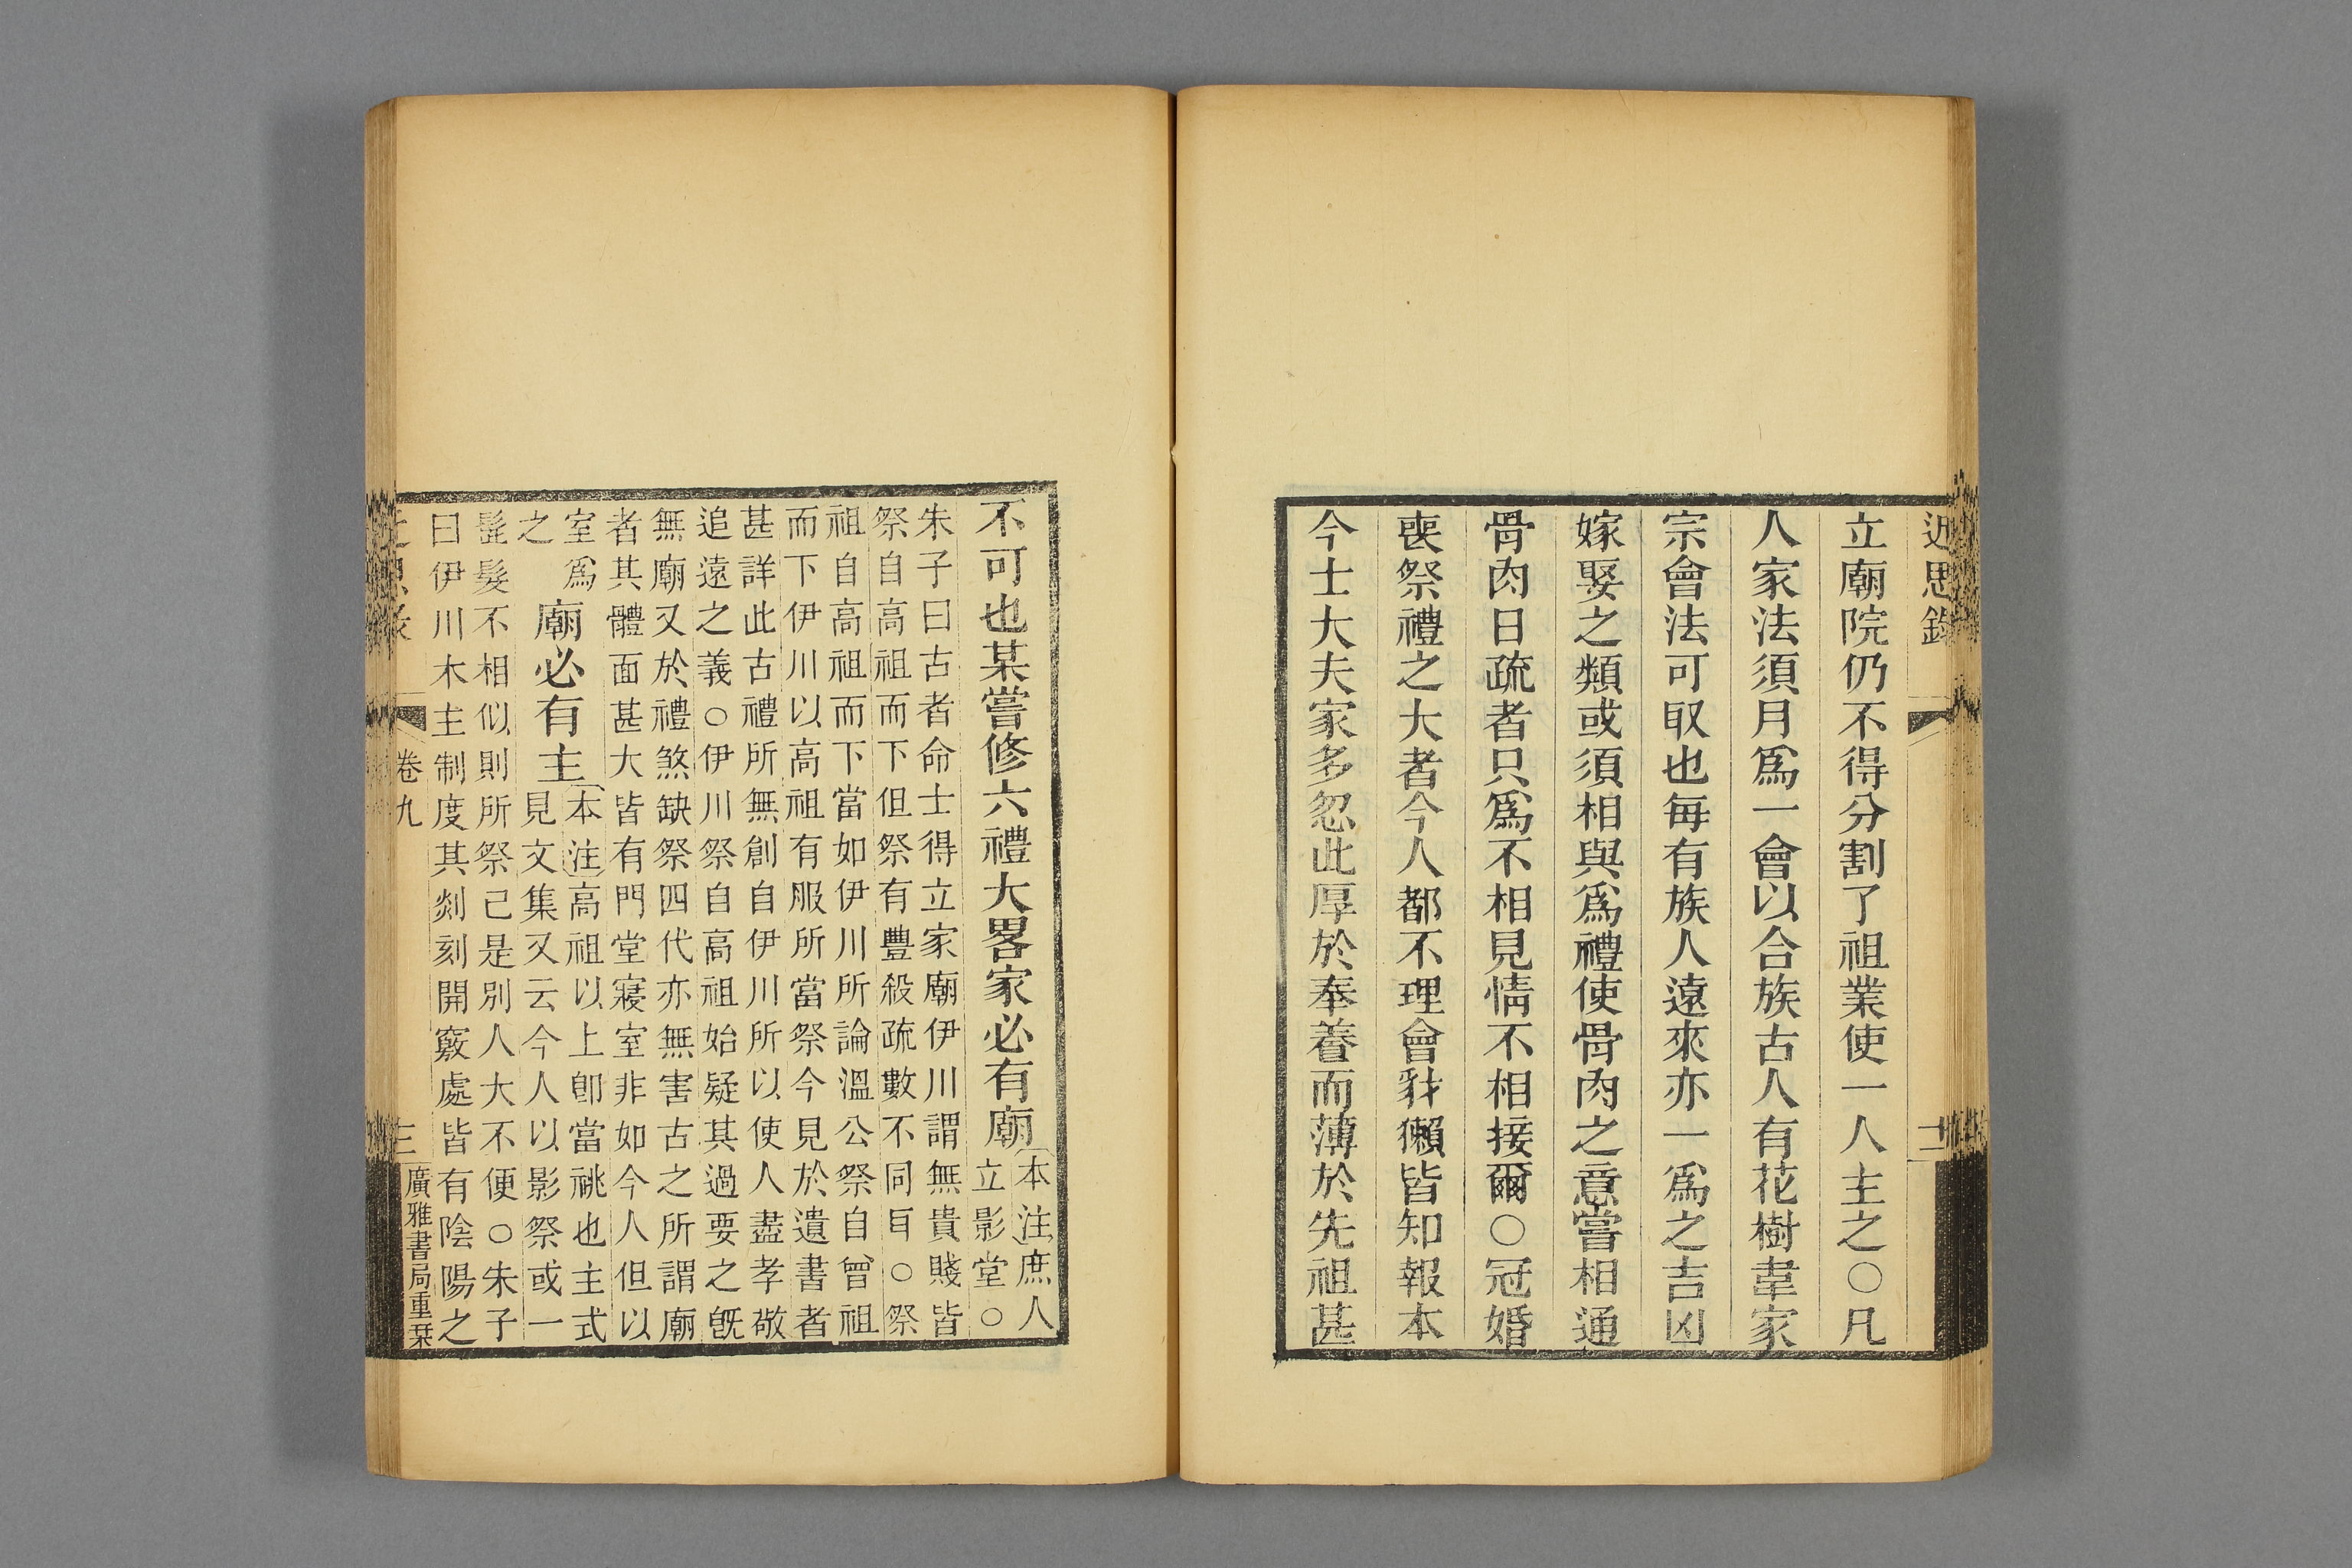 近思錄
十二
立廟院仍不得分割了祖業使一人主之○凡
人家法須月爲一會以合族古人有花樹韋家
宗會法可取也每有族人遠來亦一爲之吉凶
嫁娶之類或須相與爲禮使骨肉之意嘗相通
骨肉日疏者只爲不相見情不相接爾○冠婚
喪祭禮之大者今人都不理會豺獺皆知報本
今士大夫家多忽此厚於奉養而薄於先祖甚
不可也某嘗修六禮大畧家必有廟
本注庶人
立影堂○
朱子曰古者命士得立家廟伊川謂無貴賤皆
祭自高祖而下但祭有豐殺疏數不同耳○祭
祖自高祖而下當如伊川所論溫公祭自曾祖
而下伊川以高祖有服所當祭今見於遺書者
甚詳此古禮所無創自伊川所以使人盡孝敬
追遠之義○伊川祭自高祖始疑其過要之旣
無廟又於禮煞缺祭四代亦無害古之所謂廟
者其體面甚大皆有門堂寢室非如今人但以
室爲
之
廟必有主
本注高祖以上卽當祧也主式
見文集又云今人以影祭或一
髭髮不相似則所祭己是別人大不便○朱子
曰伊川木主制度其剡刻開竅處皆有陰陽之
卷九
三
廣雅書局重栞